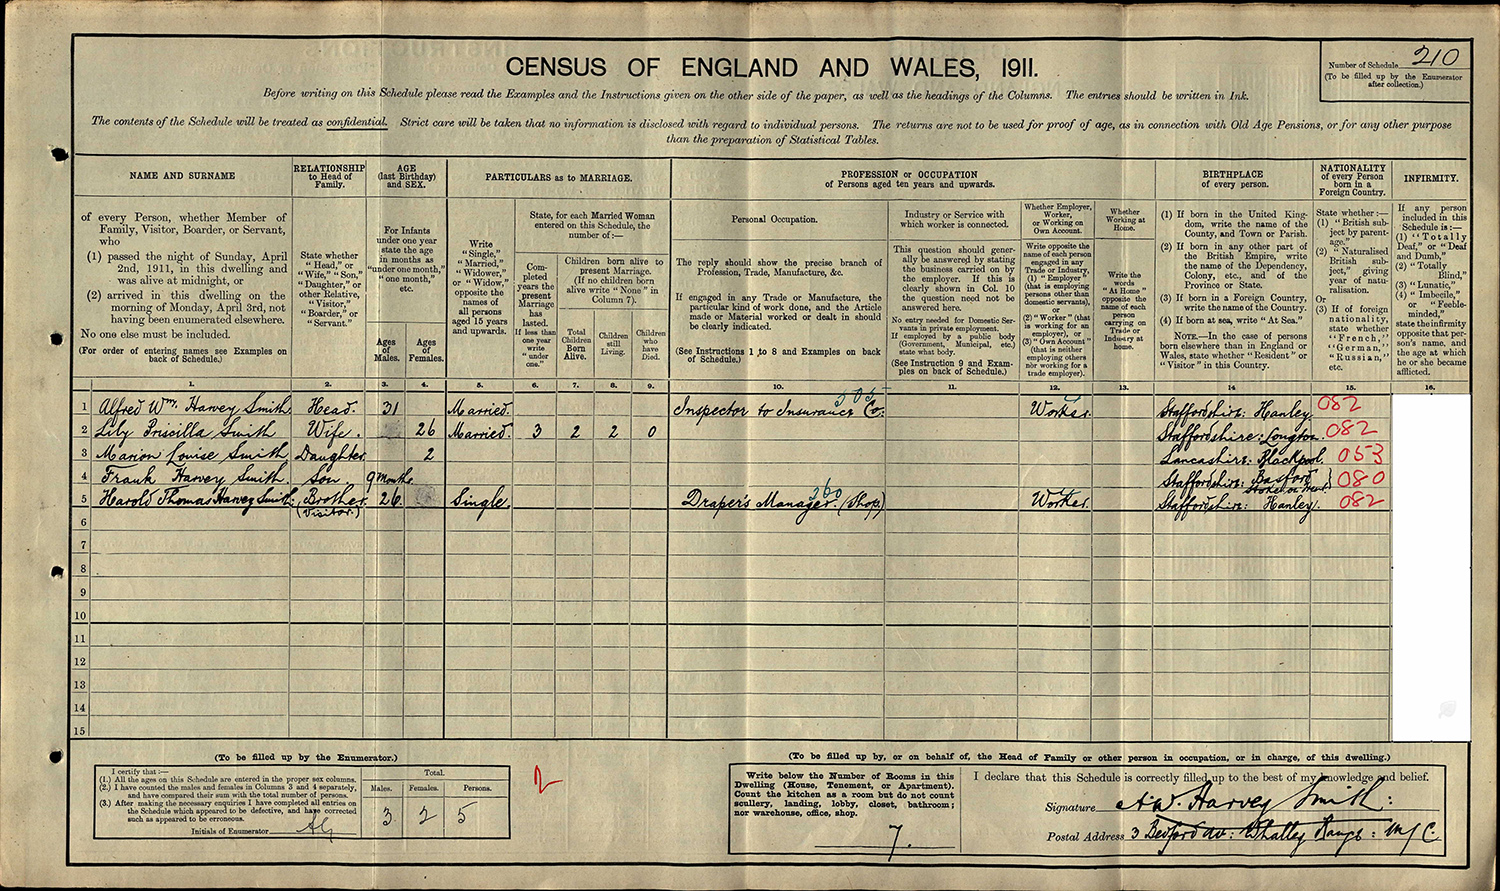 CENSUS OF ENGLAND AND WALES, 1911.
Number of Schedule 210
(To be filled up by the Enumerator
after collection.)
Before writing on this Schedule please read the Examples and the Instructions given on the other side of the paper, as well as the headings of the Columns. The entries should be written in Ink.
The contents of the Schedule will be treated as confidential. Strict care will be taken that no information is disclosed with regard to individual persons. The returns are not to be used for proof of age, as in connection with Old Age Pensions, or for any other purpose
than the preparation of Statistical Tables.
NAME AND SURNAME
of every Person, whether Member of
Family, Visitor, Boarder, or Servant,
who
(1) passed the night of Sunday, April
2nd, 1911, in this dwelling and
was alive at midnight, or
(2) arrived in this dwelling on the
morning of Monday, April 3rd, not
having been enumerated elsewhere.
No one else must be included.
(For order of entering names see Examples on
back of Schedule.)
RELATIONSHIP
to Head of
Family.
State whether
"Head," or
"Wife," "Son,"
"Daughter," or
other Relative,
"Visitor,"
"Boarder," or
"Servant."
AGE
(last Birthday)
and SEX.
For Infants
under one year
state the age
in months as
"under one month,"
"one month,"
etc.
Ages
of
Males.
Ages
of
Females.
PARTICULARS as to MARRIAGE.
Write
"Single,"
"Married,"
"Widower,"
or "Widow,"
opposite the
names of
all persons
aged 15 years
and upwards.
State, for each Married Woman
entered on this Schedule, the
number of:—
Com-
pleted
years the
present
Marriage
has
lasted.
If less than
one year
write
"under
one."
Children born alive to
present Marriage.
(If no children born
alive write "None" in
Column 7).
Total
Children
Born
Alive.
Children
still
Living.
Children
who
have
Died.
PROFESSION or OCCUPATION
of Persons aged ten years and upwards.
Personal Occupation.
The reply should show the precise branch of
Profession, Trade, Manufacture, &c.
If engaged in any Trade or Manufacture, the
particular kind of work done, and the Article
made or Material worked or dealt in should
be clearly indicated.
(See Instructions 1 to 8 and Examples on back
of Schedule.)
Industry or Service with
which worker is connected.
This question should gener-
ally be answered by stating
the business carried on by
the employer. If this is
clearly shown in Col. 10
the question need not be
answered here.
No entry needed for Domestic Ser-
vants in private employment.
If employed by a public body
(Government, Municipal, etc.)
state what body.
(See Instruction 9 and Exam-
ples on back of Schedule.)
Whether Employer,
Worker,
or Working on
Own Account.
Write opposite the
name of each person
engaged in any
Trade or Industry,
(1) "Employer"
(that is employing
persons other than
domestic servants),
or
(2) "Worker" (that
is working for an
employer), or
(3) "Own Account"
(that is neither
employing others
nor working for a
trade employer).
Whether
Working at
Home.
Write the
words
"At Home"
opposite the
name of each
person
carrying on
Trade or
Industry at
home.
BIRTHPLACE
of every person.
(1) If born in the United King-
dom, write the name of the
County, and Town or Parish.
(2) If born in any other part of
the British Empire, write
the name of the Dependency,
Colony, etc., and of the
Province or State.
(3) If born in a Foreign Country,
write the name of the Country.
(4) If born at sea, write "At Sea."
NOTE.—In the case of persons
born elsewhere than in England or
Wales, state whether "Resident" or
"Visitor" in this Country.
NATIONALITY
of every Person
born in a
Foreign Country.
State whether:—
(1) "British sub-
ject by parent-
age."
(2) "Naturalised
British sub-
ject," giving
year of natu-
ralisation.
Or
(3) If of foreign
nationality,
state whether
"French,"
"German,"
"Russian,"
etc.
INFIRMITY.
If any person
included in this
Schedule is:—
(1) "Totally
Deaf," or "Deaf
and Dumb,"
(2) "Totally
Blind,"
(3) "Lunatic,"
(4) "Imbecile,"
or "Feeble-
minded,"
state the infirmity
opposite that per-
son's name, and
the age at which
he or she became
afflicted.
1. 2. 3. 4. 5. 6. 7. 8. 9. 10. 11. 12. 13. 14 15. 16.
1 Alfred Wm. Harvey Smith Head. 31 Married. Inspector to Insurance Co. 505 Worker. Staffordshire: Hanley 082
2 Lily Priscilla Smith Wife. 26 Married. 3 2 2 0 Staffordshire: Longton. 082
3 Marion Louise Smith Daughter 2 Lancashire: Blackpool. 053
4 Frank Harvey Smith. Son. 9 months. Staffordshire: Basford Stoke on Trent. 080
5 Harold Thomas Harvey Smith: Brother. (Visitor.) 26. Single. Draper's Manager. (Shop) 360 Worker. Staffordshire: Hanley. 082
6
7
8
9
10
11
12
13
14
15
(To be filled up by the Enumerator.)
I certify that:—
(1.) All the ages on this Schedule are entered in the proper sex columns.
(2.) I have counted the males and females in Columns 3 and 4 separately,
and have compared their sum with the total number of persons.
(3.) After making the necessary enquiries I have completed all entries on
the Schedule which appeared to be defective, and have corrected
such as appeared to be erroneous.
Initials of Enumerator
Total.
Males. Females. Persons.
3 2 5
2
(To be filled up by, or on behalf of, the Head of Family or other person in occupation, or in charge, of this dwelling.)
Write below the Number of Rooms in this
Dwelling (House, Tenement, or Apartment).
Count the kitchen as a room but do not count
scullery, landing, lobby, closet, bathroom;
nor warehouse, office, shop.
7.
I declare that this Schedule is correctly filled up to the best of my knowledge and belief.
Signature A.W. Harvey Smith:
Postal Address 3 Bedford Av: Whalley Range: M/C.